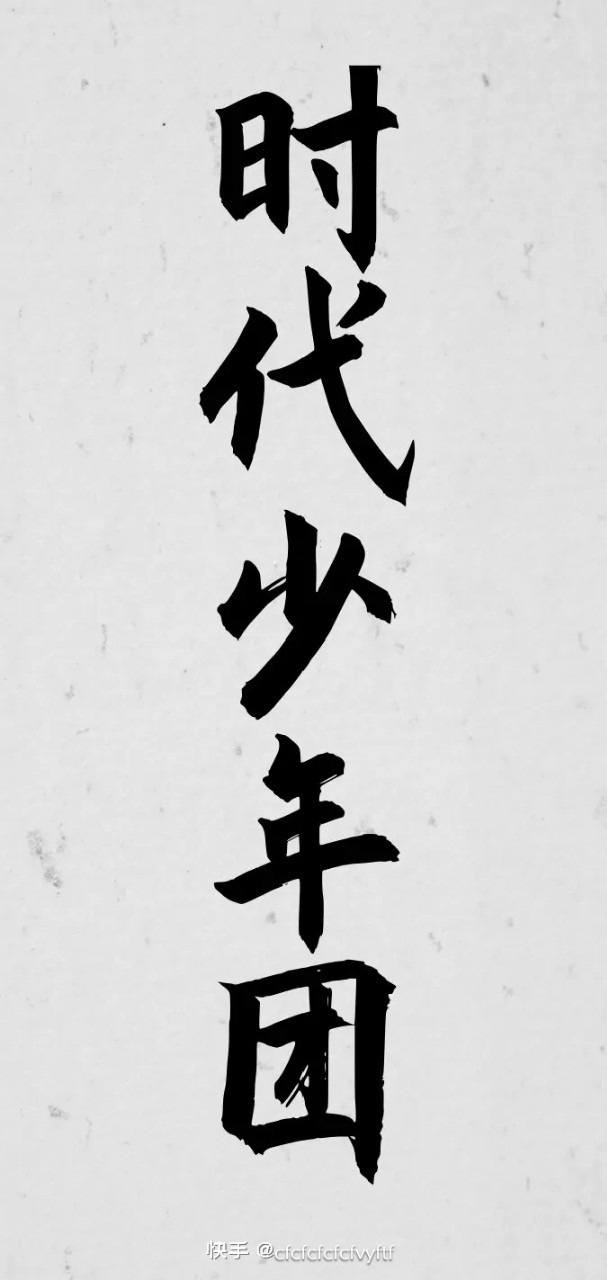 时代少年团
快手 @cfcfcfcfcfvyftf